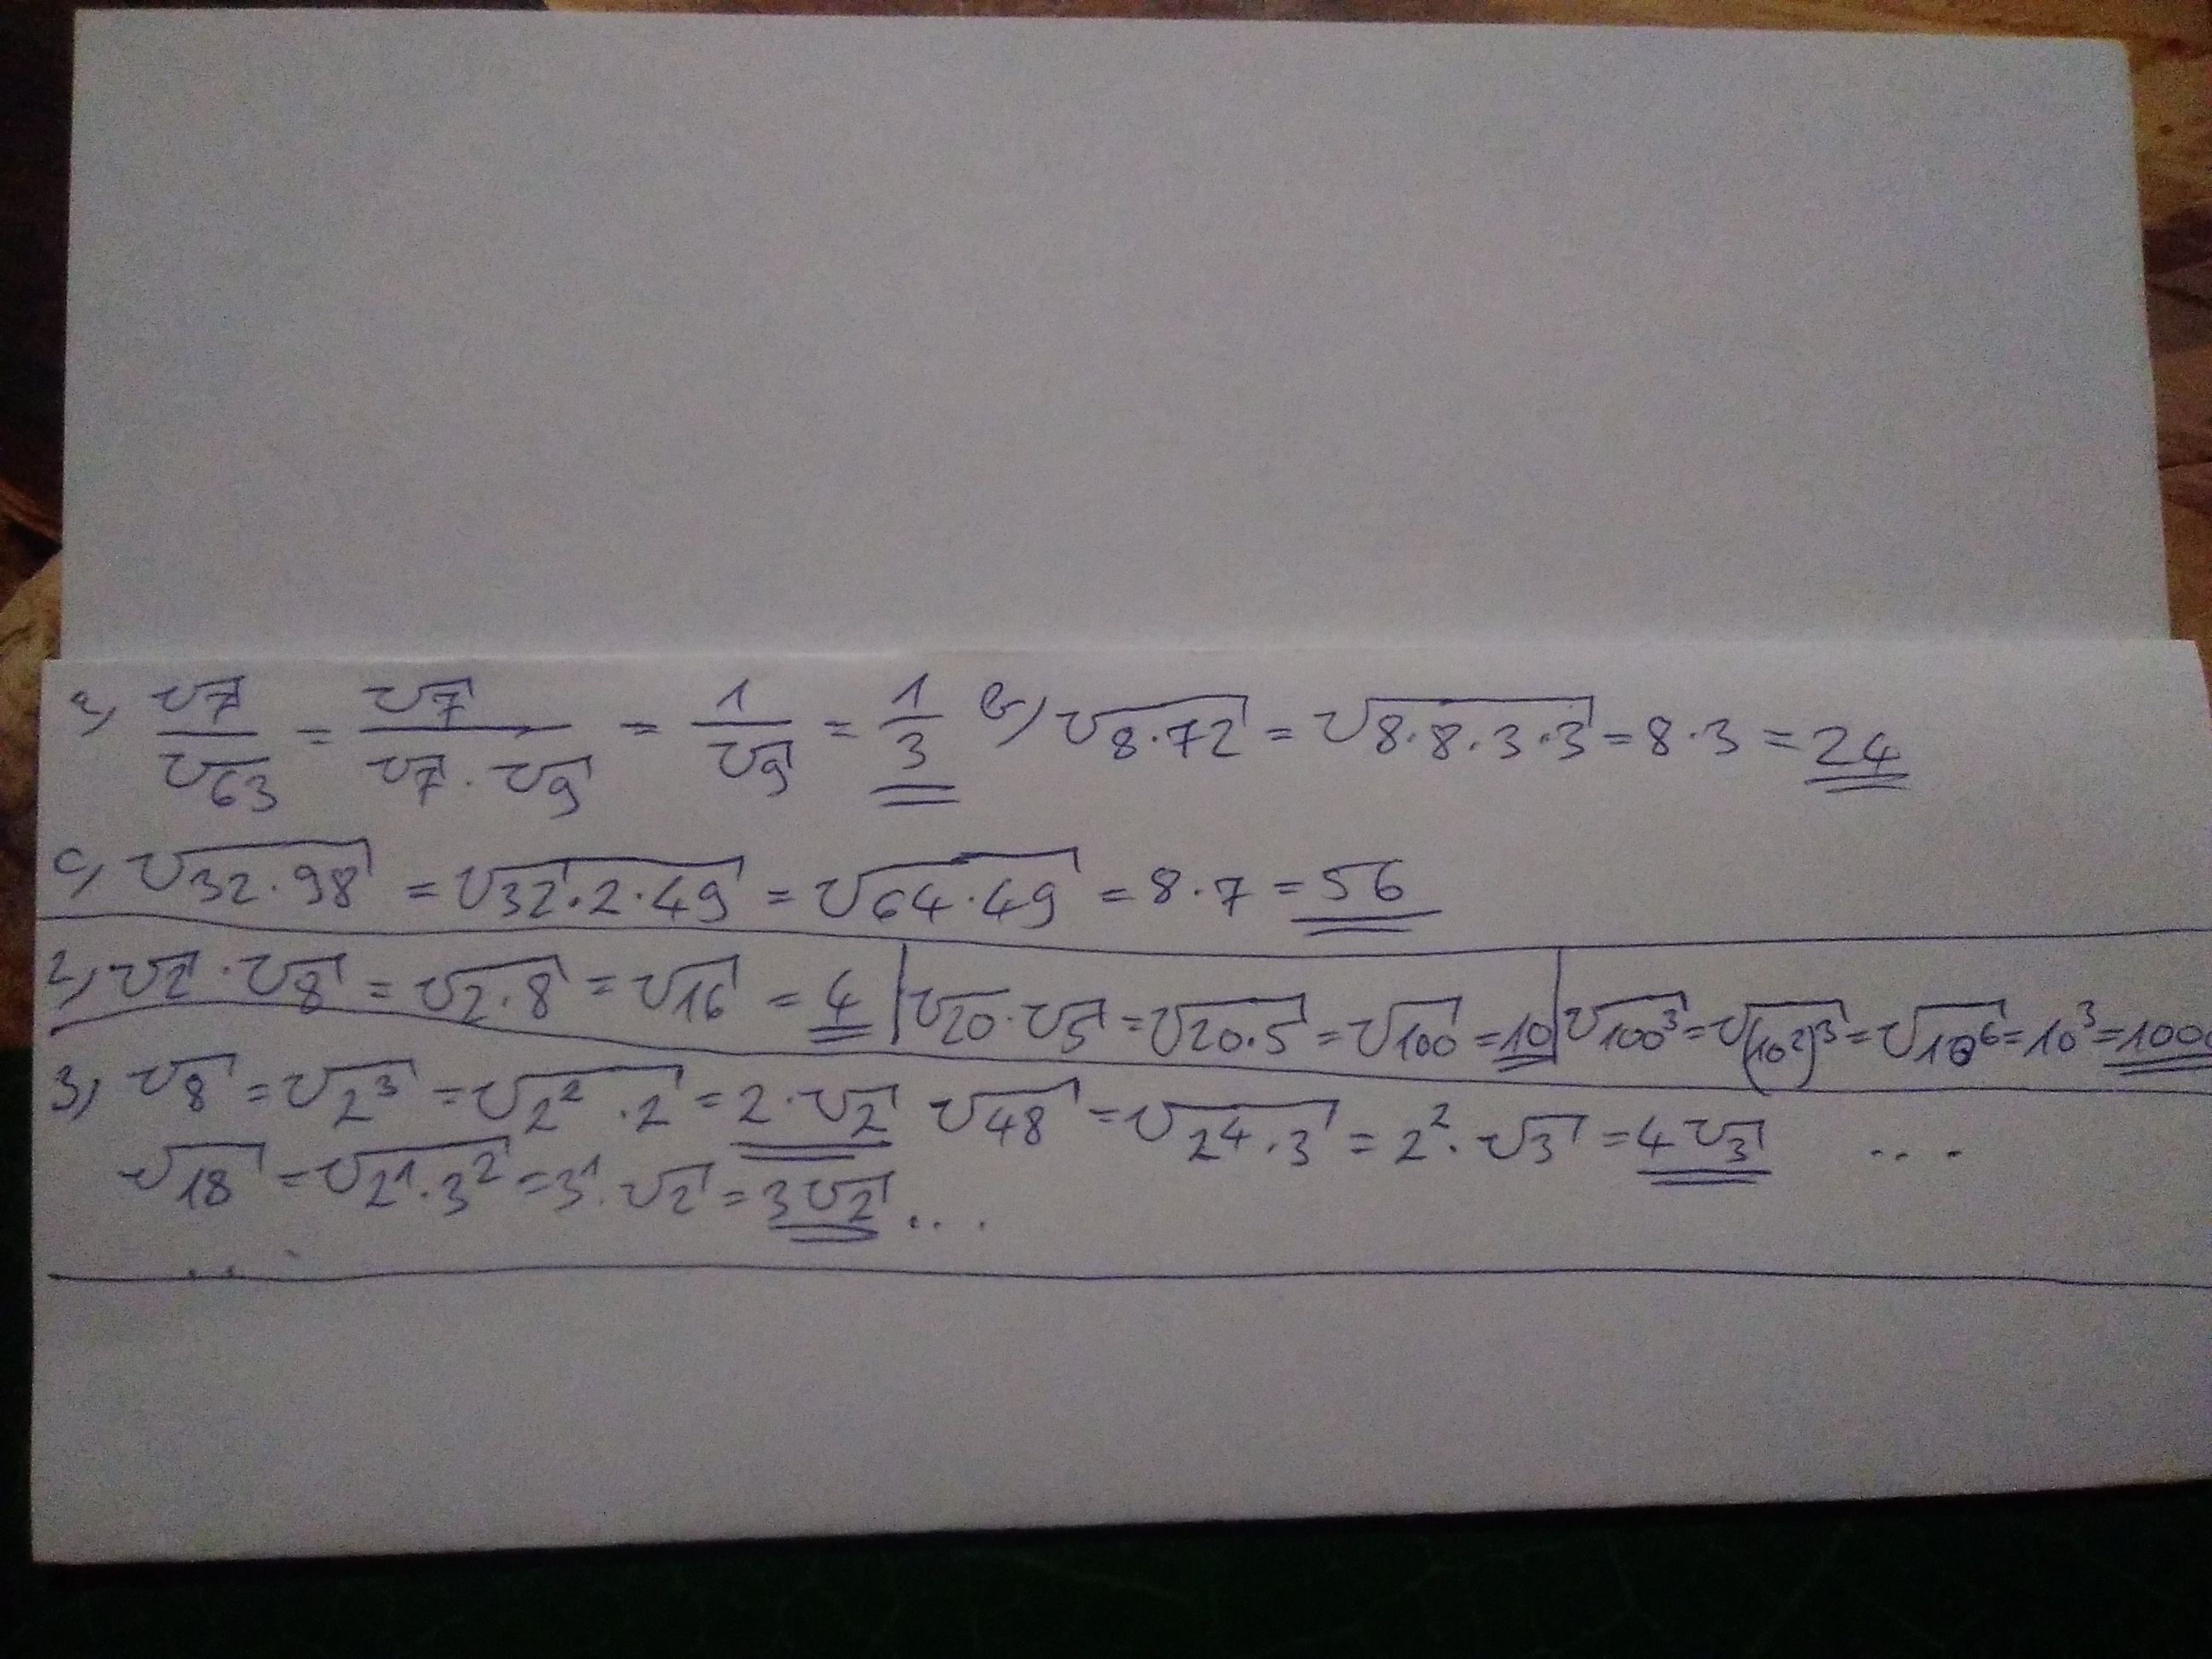 a) √7/√63 = √7/(√7·√9) = 1/√9 = 1/3 b) √(8·72) = √(8·8·3·3) = 8·3 = 24
c) √(32·98) = √(32·2·49) = √(64·49) = 8·7 = 56
2) √2·√8 = √(2·8) = √16 = 4 | √20·√5 = √(20·5) = √100 = 10 | √(100³) = √((10²)³) = √(10⁶) = 10³ = 1000
3) √8 = √(2³) = √(2²·2) = 2·√2 √48 = √(2⁴·3) = 2²·√3 = 4√3 ...
√18 = √(2¹·3²) = 3¹·√2 = 3√2 ...
...